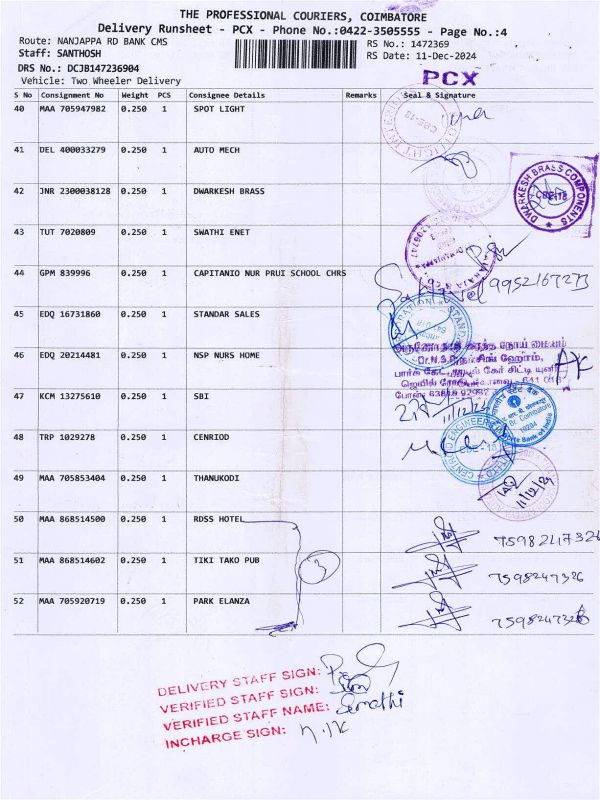 THE PROFESSIONAL COURIERS, COIMBATORE
Delivery Runsheet - PCX - Phone No.:0422-3505555 - Page No.:4
Route: NANJAPPA RD BANK CMS RS No.: 1472369
Staff: SANTHOSH RS Date: 11-Dec-2024
DRS No.: DCJB147236904
Vehicle: Two Wheeler Delivery PCX
S No Consignment No Weight PCS Consignee Details Remarks Seal & Signature
40 MAA 705947982 0.250 1 SPOT LIGHT
41 DEL 400033279 0.250 1 AUTO MECH
42 JNR 2300038128 0.250 1 DWARKESH BRASS
DWARKESH BRASS COMPONENTS
43 TUT 7020809 0.250 1 SWATHI ENET
44 GPM 839996 0.250 1 CAPITANIO NUR PRUI SCHOOL CHRS
9952167273
45 EDQ 16731860 0.250 1 STANDAR SALES
46 EDQ 20214481 0.250 1 NSP NURS HOME
47 KCM 13275610 0.250 1 SBI
11/12/24
48 TRP 1029278 0.250 1 CENRIOD
49 MAA 705853404 0.250 1 THANUKODI
11/12/24
50 MAA 868514500 0.250 1 RDSS HOTEL
7598247326
51 MAA 868514602 0.250 1 TIKI TAKO PUB 3
7598247326
52 MAA 705920719 0.250 1 PARK ELANZA
7598247326
DELIVERY STAFF SIGN:
VERIFIED STAFF SIGN:
VERIFIED STAFF NAME:
INCHARGE SIGN: